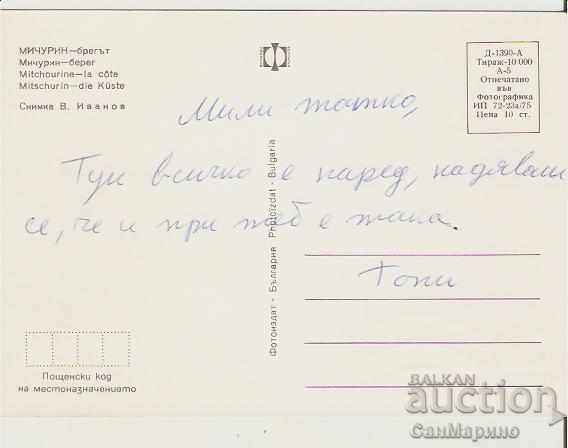 МИЧУРИН—брегът
Мичурин—берег
Mitchourine—la côte
Mitschurin—die Küste
Снимка В. Иванов
Д-1390-А
Тираж-10 000
А-5
Отпечатано
във
Фотографика
ИП 72-23а/75
Цена 10 ст.
Мили татко,
Тук всичко е наред, надявам
се, че и при теб е така.
Топи
Фотоиздат - България Photoizdat - Bulgaria
Пощенски код
на местоназначението
BALKAN
auction
СанМарино